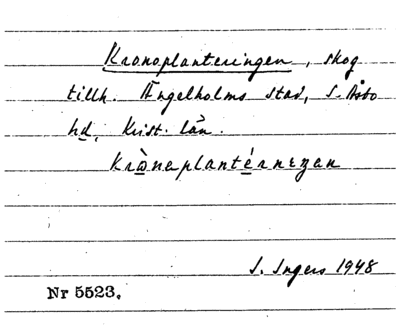 Kronoplanteringen, skog
tillh. Ängelholms stad, S. Åsbo
hd, Krist. län.
Krὼnɐplantérnɩŋɐn
I. Ingers 1948
Nr 5523.